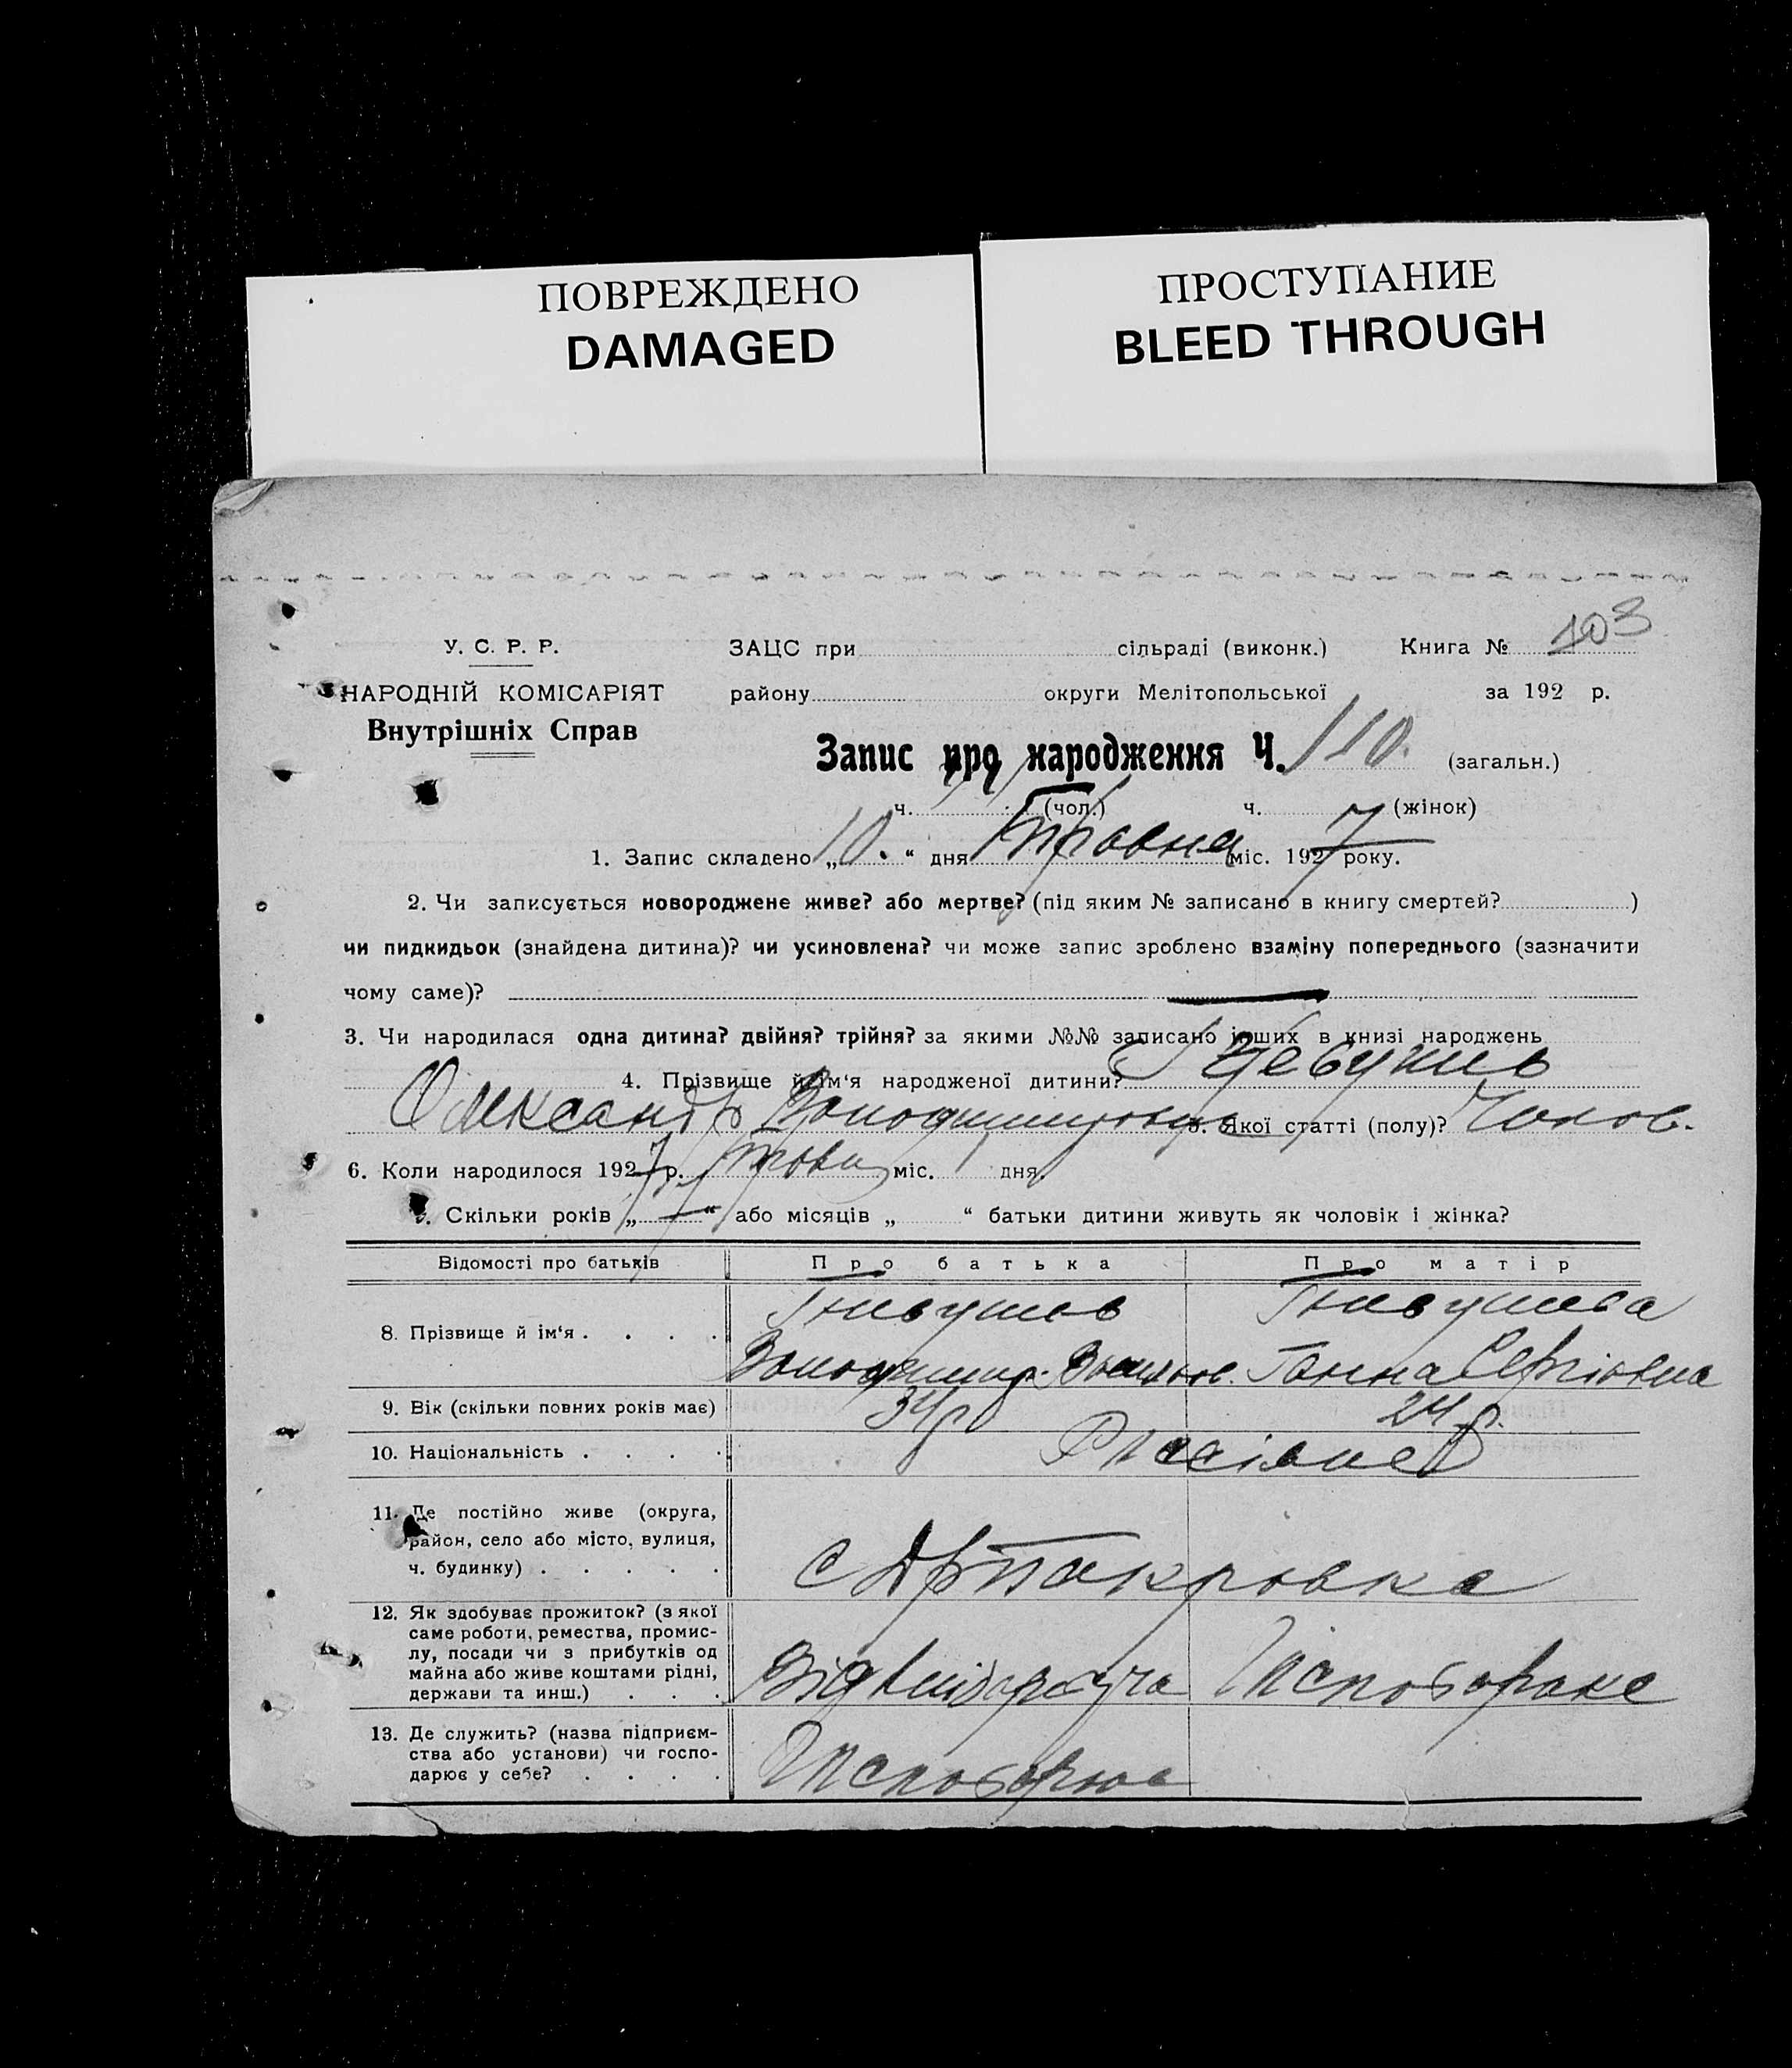 ПОВРЕЖДЕНО
DAMAGED
ПРОСТУПАНИЕ
BLEED THROUGH
У. С. Р. Р.
НАРОДНІЙ КОМІСАРІЯТ
Внутрішніх Справ
ЗАЦС при сільраді (виконк.) Книга № 103
району округи Мелітопольської за 192 р.
Запис про народження Ч. 110. (загальн.)
ч. (чол.) ч. (жінок)
1. Запис складено „10.“ дня Травня міс. 1927 року.
2. Чи записується новороджене живе? або мертве? (під яким № записано в книгу смертей? )
чи пидкидьок (знайдена дитина)? чи усиновлена? чи може запис зроблено взаміну попереднього (зазначити
чому саме)?
3. Чи народилася одна дитина? двійня? трійня? за якими №№ записано інших в книзі народжень
4. Прізвище й ім‘я народженої дитини?
Олександр 5. Якої статті (полу)? Чолов.
6. Коли народилося 1927 р. міс. дня
7. Скільки років „ “ або місяців „ “ батьки дитини живуть як чоловік і жінка?
Відомості про батьків
Про батька
Про матір
8. Прізвище й ім‘я . . . .
Володимир
Ганна Сергіївна
9. Вік (скільки повних років має)
34 р
24 р.
10. Національність . . . .
11. Де постійно живе (округа,
район, село або місто, вулиця,
ч. будинку) . . . . .
12. Як здобуває прожиток? (з якої
саме роботи, ремества, промис-
лу, посади чи з прибутків од
майна або живе коштами рідні,
держави та инш.) . . .
13. Де служить? (назва підприєм-
ства або установи) чи госпо-
дарює у себе? . . . .